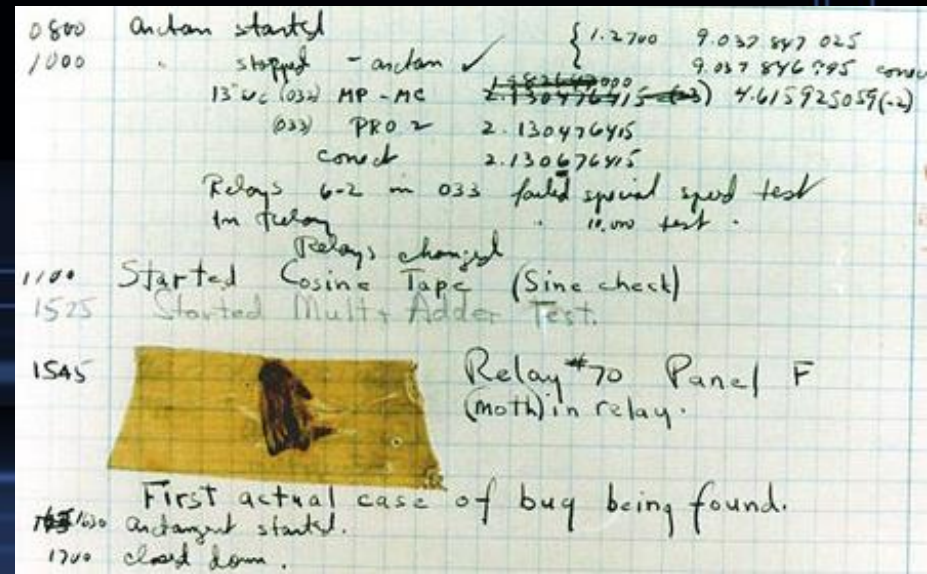 0800 arctan started { 1.2700 9.037 847 025
1000 " stopped - arctan ✓ { 9.037 846 795 correct
13" uc (033) MP - MC 2.130476415 (-3) 4.615925059(-2)
(033) PRO 2 2.130476415
correct 2.130676415
Relays 6-2 in 033 failed special speed test
In Relay " 10.000 test .
Relays changed
1100 Started Cosine Tape (Sine check)
1525 Started Mult + Adder Test.
1545 Relay #70 Panel F
(moth) in relay.
First actual case of bug being found.
1630 arctangent started.
1700 closed down .